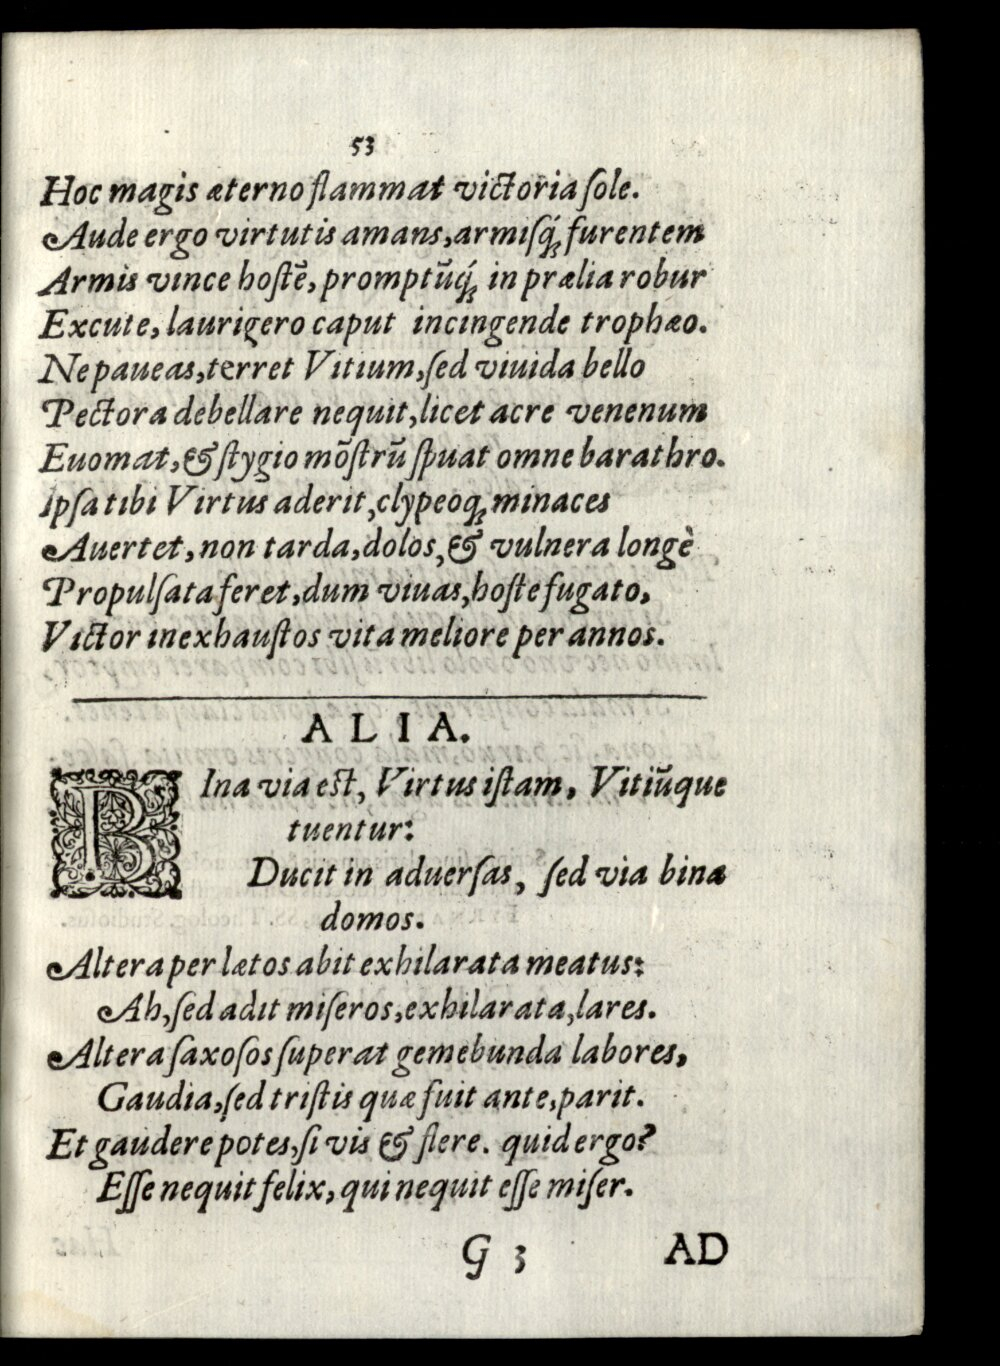 53
Hoc magis æterno flammat victoria ſole.
Aude ergo virtutis amans, armiſq́; furentem
Armis vince hoſtē, promptūq́; in prælia robur
Excute, laurigero caput incingende trophæo.
Ne paueas, terret Vitium, ſed viuida bello
Pectora debellare nequit, licet acre venenum
Euomat, & ſtygio mōſtrū ſpuat omne barathro.
Ipſa tibi Virtus aderit, clypeoq; minaces
Auertet, non tarda, dolos, & vulnera longè
Propulſata feret, dum viuas, hoſte fugato,
Victor inexhauſtos vita meliore per annos.
ALIA.
BIna via eſt, Virtus iſtam, Vitiūque
tuentur:
Ducit in aduerſas, ſed via bina
domos.
Altera per lætos abit exhilarata meatus:
Ah, ſed adit miſeros, exhilarata, lares.
Altera ſaxoſos ſuperat gemebunda labores,
Gaudia, ſed triſtis quæ fuit ante, parit.
Et gaudere potes, ſi vis & flere. quid ergo?
Eſſe nequit felix, qui nequit eſſe miſer.
G 3 AD